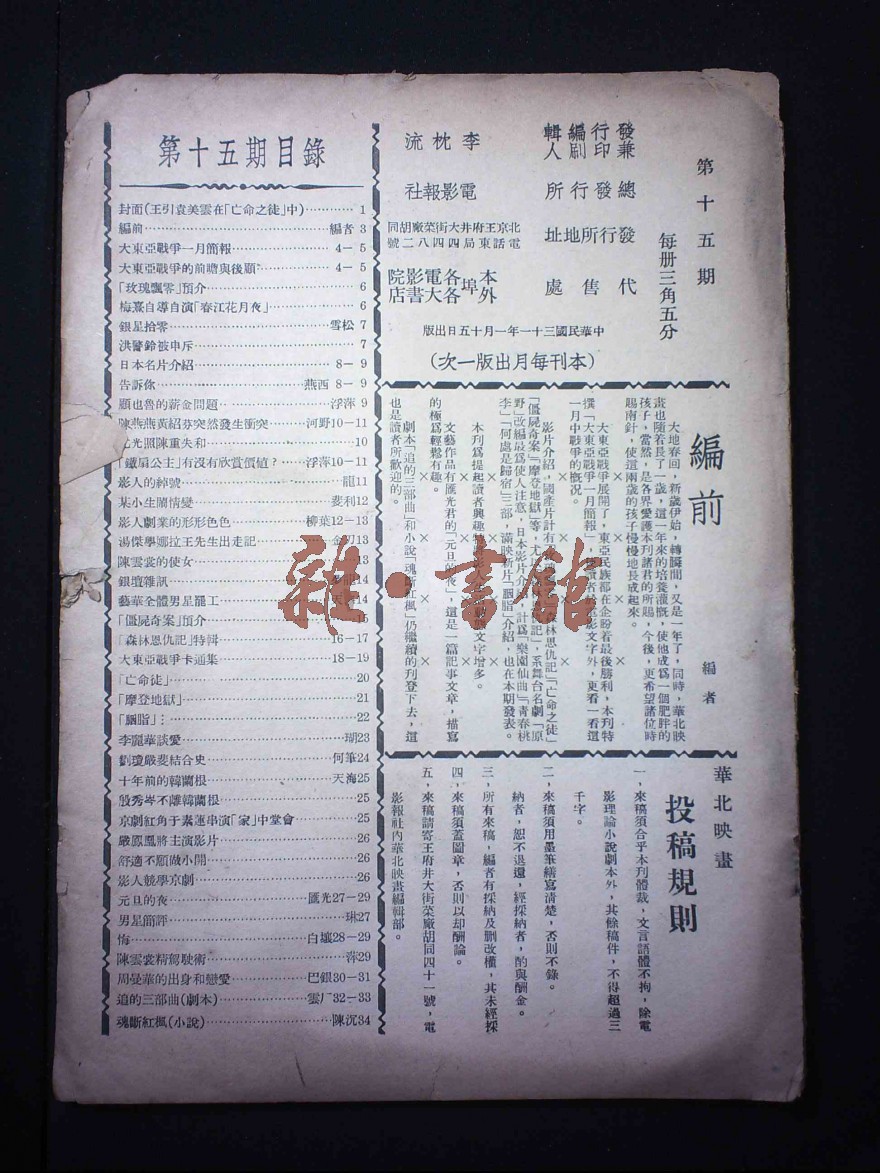 第十五期目錄
封面(王引袁美雲在「亡命之徒」中)………… 1
編前……………………編者 3
大東亞戰爭一月簡報……………… 4－5
大東亞戰爭的前瞻與後顧………… 4－5
「玫瑰飄零」預介………………… 6
梅熹自導自演「春江花月夜」……… 6
銀星拾零……………………雪松 7
洪警鈴被申斥…………………… 7
日本名片介紹……………………8－9
告訴你……………………燕西 8－9
顧也魯的薪金問題…………浮萍 9
陳燕燕黃紹芬突然發生衝突………河野10－11
光照陳重失和……………………10
「鐵扇公主」有沒有欣賞價值？……浮萍10－11
影人的綽號……………………龍11
某小生關情變………………斐利12
影人劇業的形形色色…………柳葉12－13
湯傑學娜拉王先生出走記………13
陳雲裳的使女……………………13
銀壇雜訊……………………14
藝華全體男星罷工……………14
「僵屍奇案」預介……………15
「森林恩仇記」特輯……………16－17
大東亞戰爭卡通集……………18－19
「亡命徒」……………………20
「摩登地獄」……………………21
「胭脂」……………………22
李麗華談愛……………………瑚23
劉瓊嚴斐結合史……………何筆24
十年前的韓蘭根……………天海25
殷秀岑不離韓蘭根……………25
京劇紅角于素蓮串演「家」中堂會………25
嚴鳳凰將主演影片……………26
舒適不願做小開……………26
影人競學京劇……………26
元旦的夜……………………匯光27－29
男星簡評……………………琳27
悔……………………白壤28－29
陳雲裳精駕駛術……………萍29
周曼華的出身和戀愛…………巴銀30－31
追的三部曲(劇本)……………雲厂32－33
魂斷紅楓(小說)……………陳沉34
第十五期
每册三角五分
發行編輯
兼印刷人
李枕流
總發行所
電影報社
發行所地址
北京王府井大街菜廠胡同
電話東局四四八二號
代售處
本外埠各電影院
各大書店
中華民國三十一年一月十五日出版
(本刊每月出版一次)
編前
編者
大地春回，新歲伊始，轉瞬間，又是一年了，同時，華北映
畫也隨着長了一歲，這一年來的培養灌漑，使他成爲一個肥胖的
孩子，當然，是各界愛護本刊諸君的所賜，今後，更希望諸位時
賜南針，使這兩歲的孩子慢慢地長成起來。
大東亞戰爭展開了，東亞民族都在企盼着最後勝利，本刊特
撰「大東亞戰爭一月簡報」，使讀者於電影文字外，更看一看這
一月中戰爭的概况。
影片介紹，國產片計有「森林恩仇記」「亡命之徒」
「僵屍奇案」「摩登地獄」等，系舞台名劇「原
野」改編最爲使人注意，日本影片介紹，計爲「樂園仙曲」「青春桃
李」「何處是歸宿」三部，滿映新片「胭脂」介紹，也在本期發表。
本刊爲提起讀者興趣文字增多。
文藝作品有匯光君的「元旦的夜」，這是一篇記事文章，描寫
的極爲輕鬆有趣。
劇本「追的三部曲」和小說「魂斷紅楓」仍繼續的刊登下去，這
也是讀者所歡迎的。
華北映畫
投稿規則
一，來稿須合乎本刊體裁，文言語體不拘，除電
影理論小說劇本外，其餘稿件，不得超過三
千字。
二，來稿須用墨筆繕寫清楚，否則不錄。
三，所有來稿，編者有採納及刪改權，其未經採
納者，恕不退還，經採納者，酌與酬金。
四，來稿須蓋圖章，否則以却酬論。
五，來稿請寄王府井大街菜廠胡同四十一號，電
影報社內華北映畫編輯部。
雜·書館